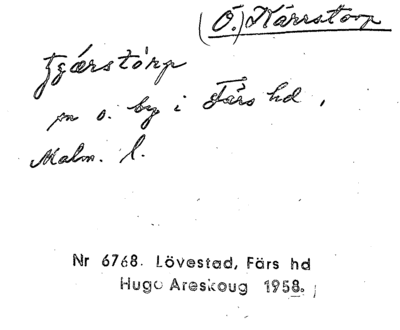 (Ö.) Kärrstorp
tjärstórp
sn o. by i Färs hd,
Malm. l.
Nr 6768. Lövestad, Färs hd
Hugo Areskoug 1958.